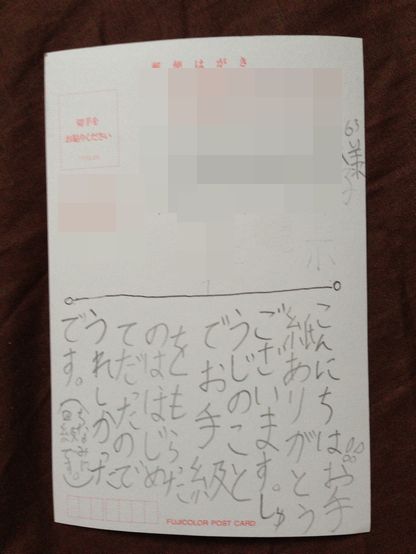 郵便はがき
切手を
お貼りください
こんにちは。お手
紙ありがとう
ございます。しゅ
うじのこと
でお手級
をもらった
のははじめ
てだったので
うれしかった
です。(ちなみに
級です。)
FUJICOLOR POST CARD